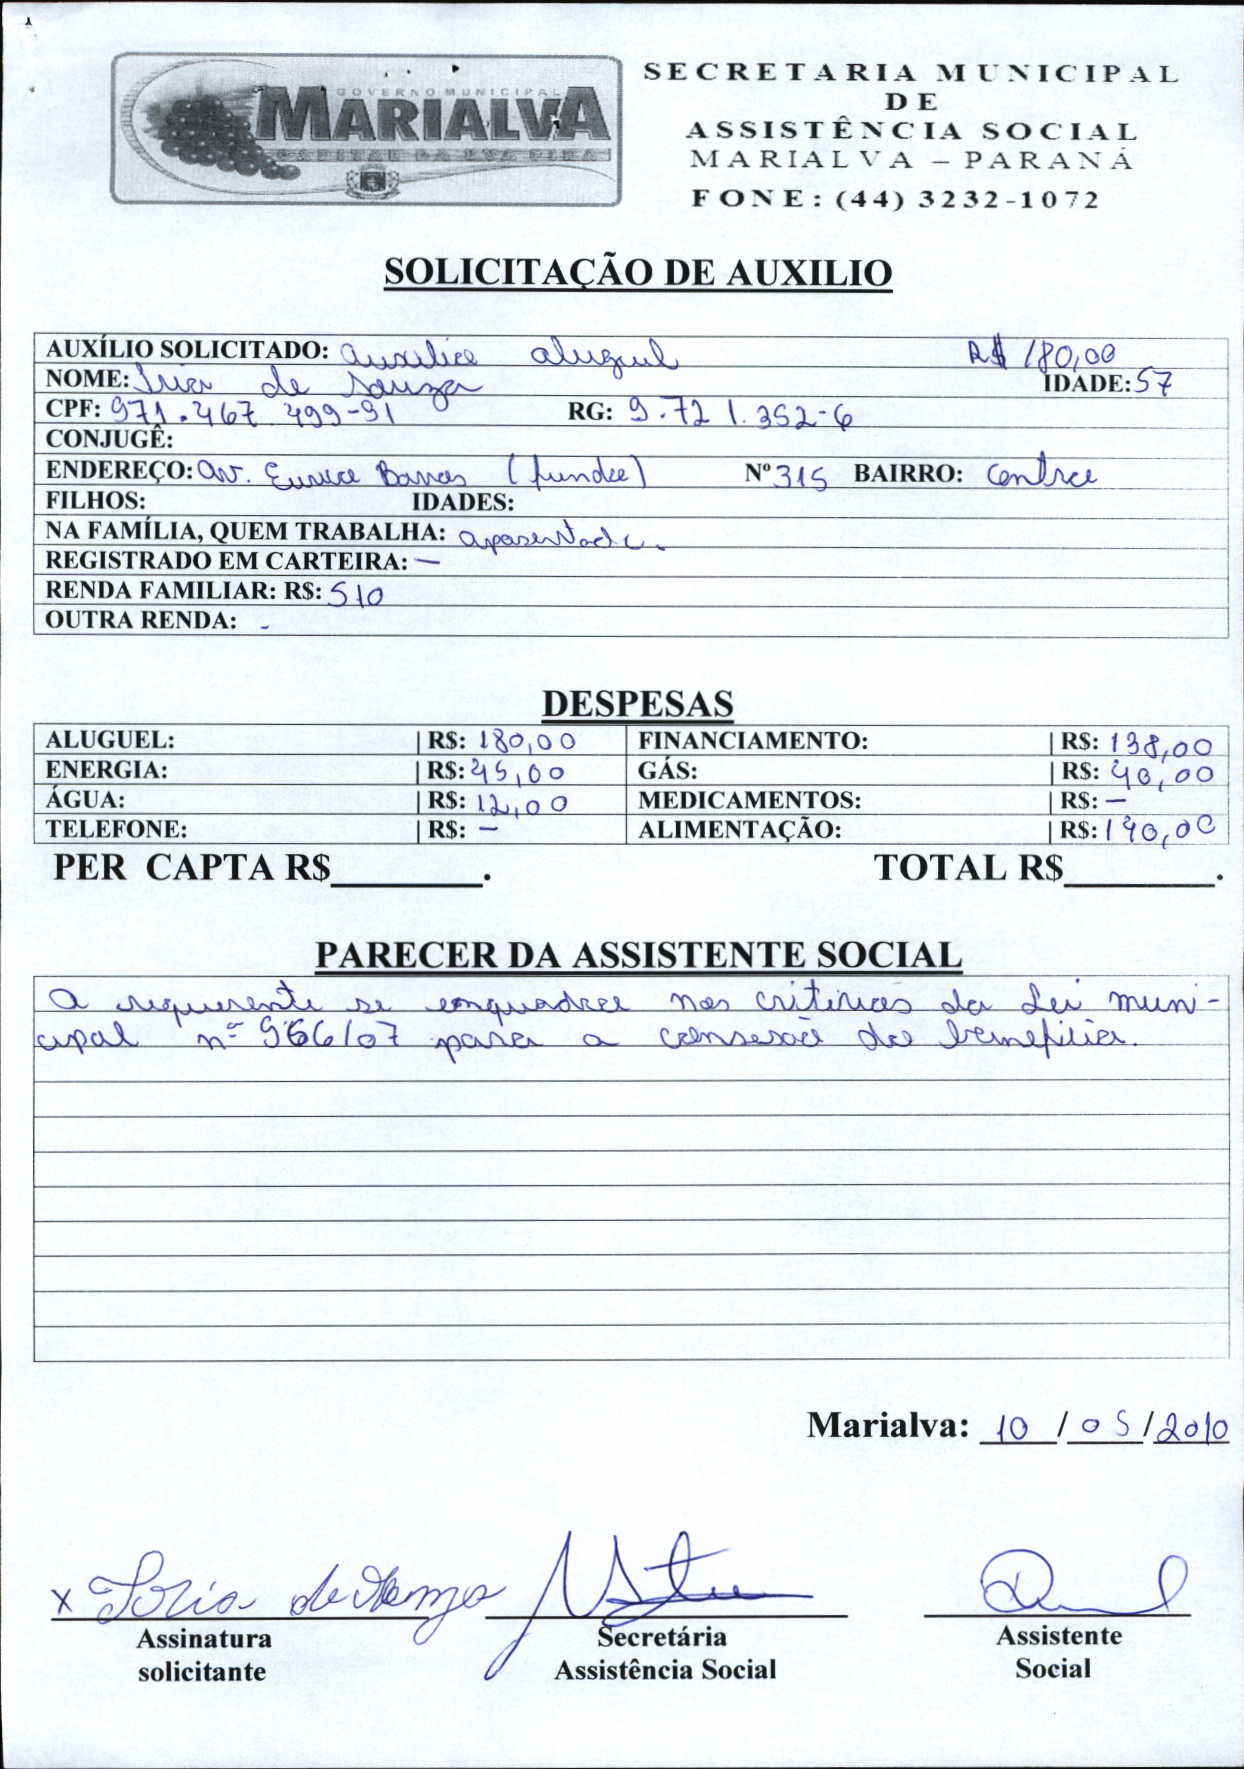 GOVERNO MUNICIPAL
MARIALVA
CAPITAL DA UVA FINA
SECRETARIA MUNICIPAL
DE
ASSISTÊNCIA SOCIAL
MARIALVA – PARANÁ
FONE: (44) 3232-1072
SOLICITAÇÃO DE AUXILIO
AUXÍLIO SOLICITADO: Auxilio aluguel R$ 180,00
NOME: de Souza IDADE: 57
CPF: 971.467.499-91 RG: 9.721.352-6
CONJUGÊ:
ENDEREÇO: av. Eunice Barros (fundo) Nº 315 BAIRRO: Centro
FILHOS: IDADES:
NA FAMÍLIA, QUEM TRABALHA: aposentada.
REGISTRADO EM CARTEIRA: –
RENDA FAMILIAR: R$: 510
OUTRA RENDA: -
DESPESAS
ALUGUEL: | R$: 180,00 FINANCIAMENTO: | R$: 138,00
ENERGIA: | R$: 45,00 GÁS: | R$: 40,00
ÁGUA: | R$: 12,00 MEDICAMENTOS: | R$: –
TELEFONE: | R$: – ALIMENTAÇÃO: | R$: 140,00
PER CAPTA R$________. TOTAL R$________.
PARECER DA ASSISTENTE SOCIAL
A requerente se enquadra nos critérios da Lei muni-
cipal nº 966/07 para a consesão do benefício.
Marialva: 10 / 05 / 2010
x de Souza
Assinatura
solicitante
Secretária
Assistência Social
Assistente
Social